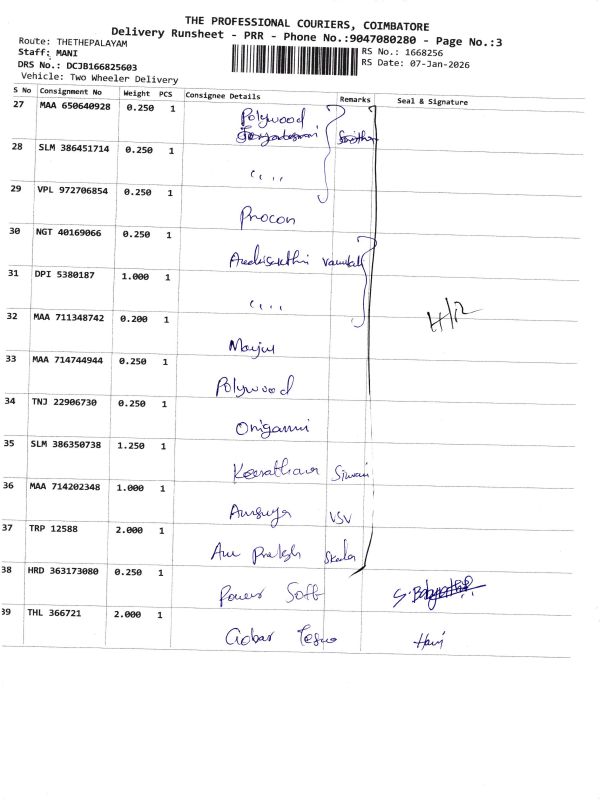 THE PROFESSIONAL COURIERS, COIMBATORE
Delivery Runsheet - PRR - Phone No.:9047080280 - Page No.:3
Route: THETHEPALAYAM
Staff: MANI
RS No.: 1668256
DRS No.: DCJB166825603
RS Date: 07-Jan-2026
Vehicle: Two Wheeler Delivery
S No Consignment No Weight PCS Consignee Details Remarks Seal & Signature
27 MAA 650640928 0.250 1 Polywood
28 SLM 386451714 0.250 1 ‘‘ ,,
29 VPL 972706854 0.250 1 Procon
30 NGT 40169066 0.250 1
31 DPI 5380187 1.000 1 ‘‘ ,,
H/R
32 MAA 711348742 0.200 1
33 MAA 714744944 0.250 1 Polywood
34 TNJ 22906730 0.250 1
35 SLM 386350738 1.250 1
36 MAA 714202348 1.000 1 VSV
37 TRP 12588 2.000 1
38 HRD 363173080 0.250 1 Power Soft
39 THL 366721 2.000 1 Hari